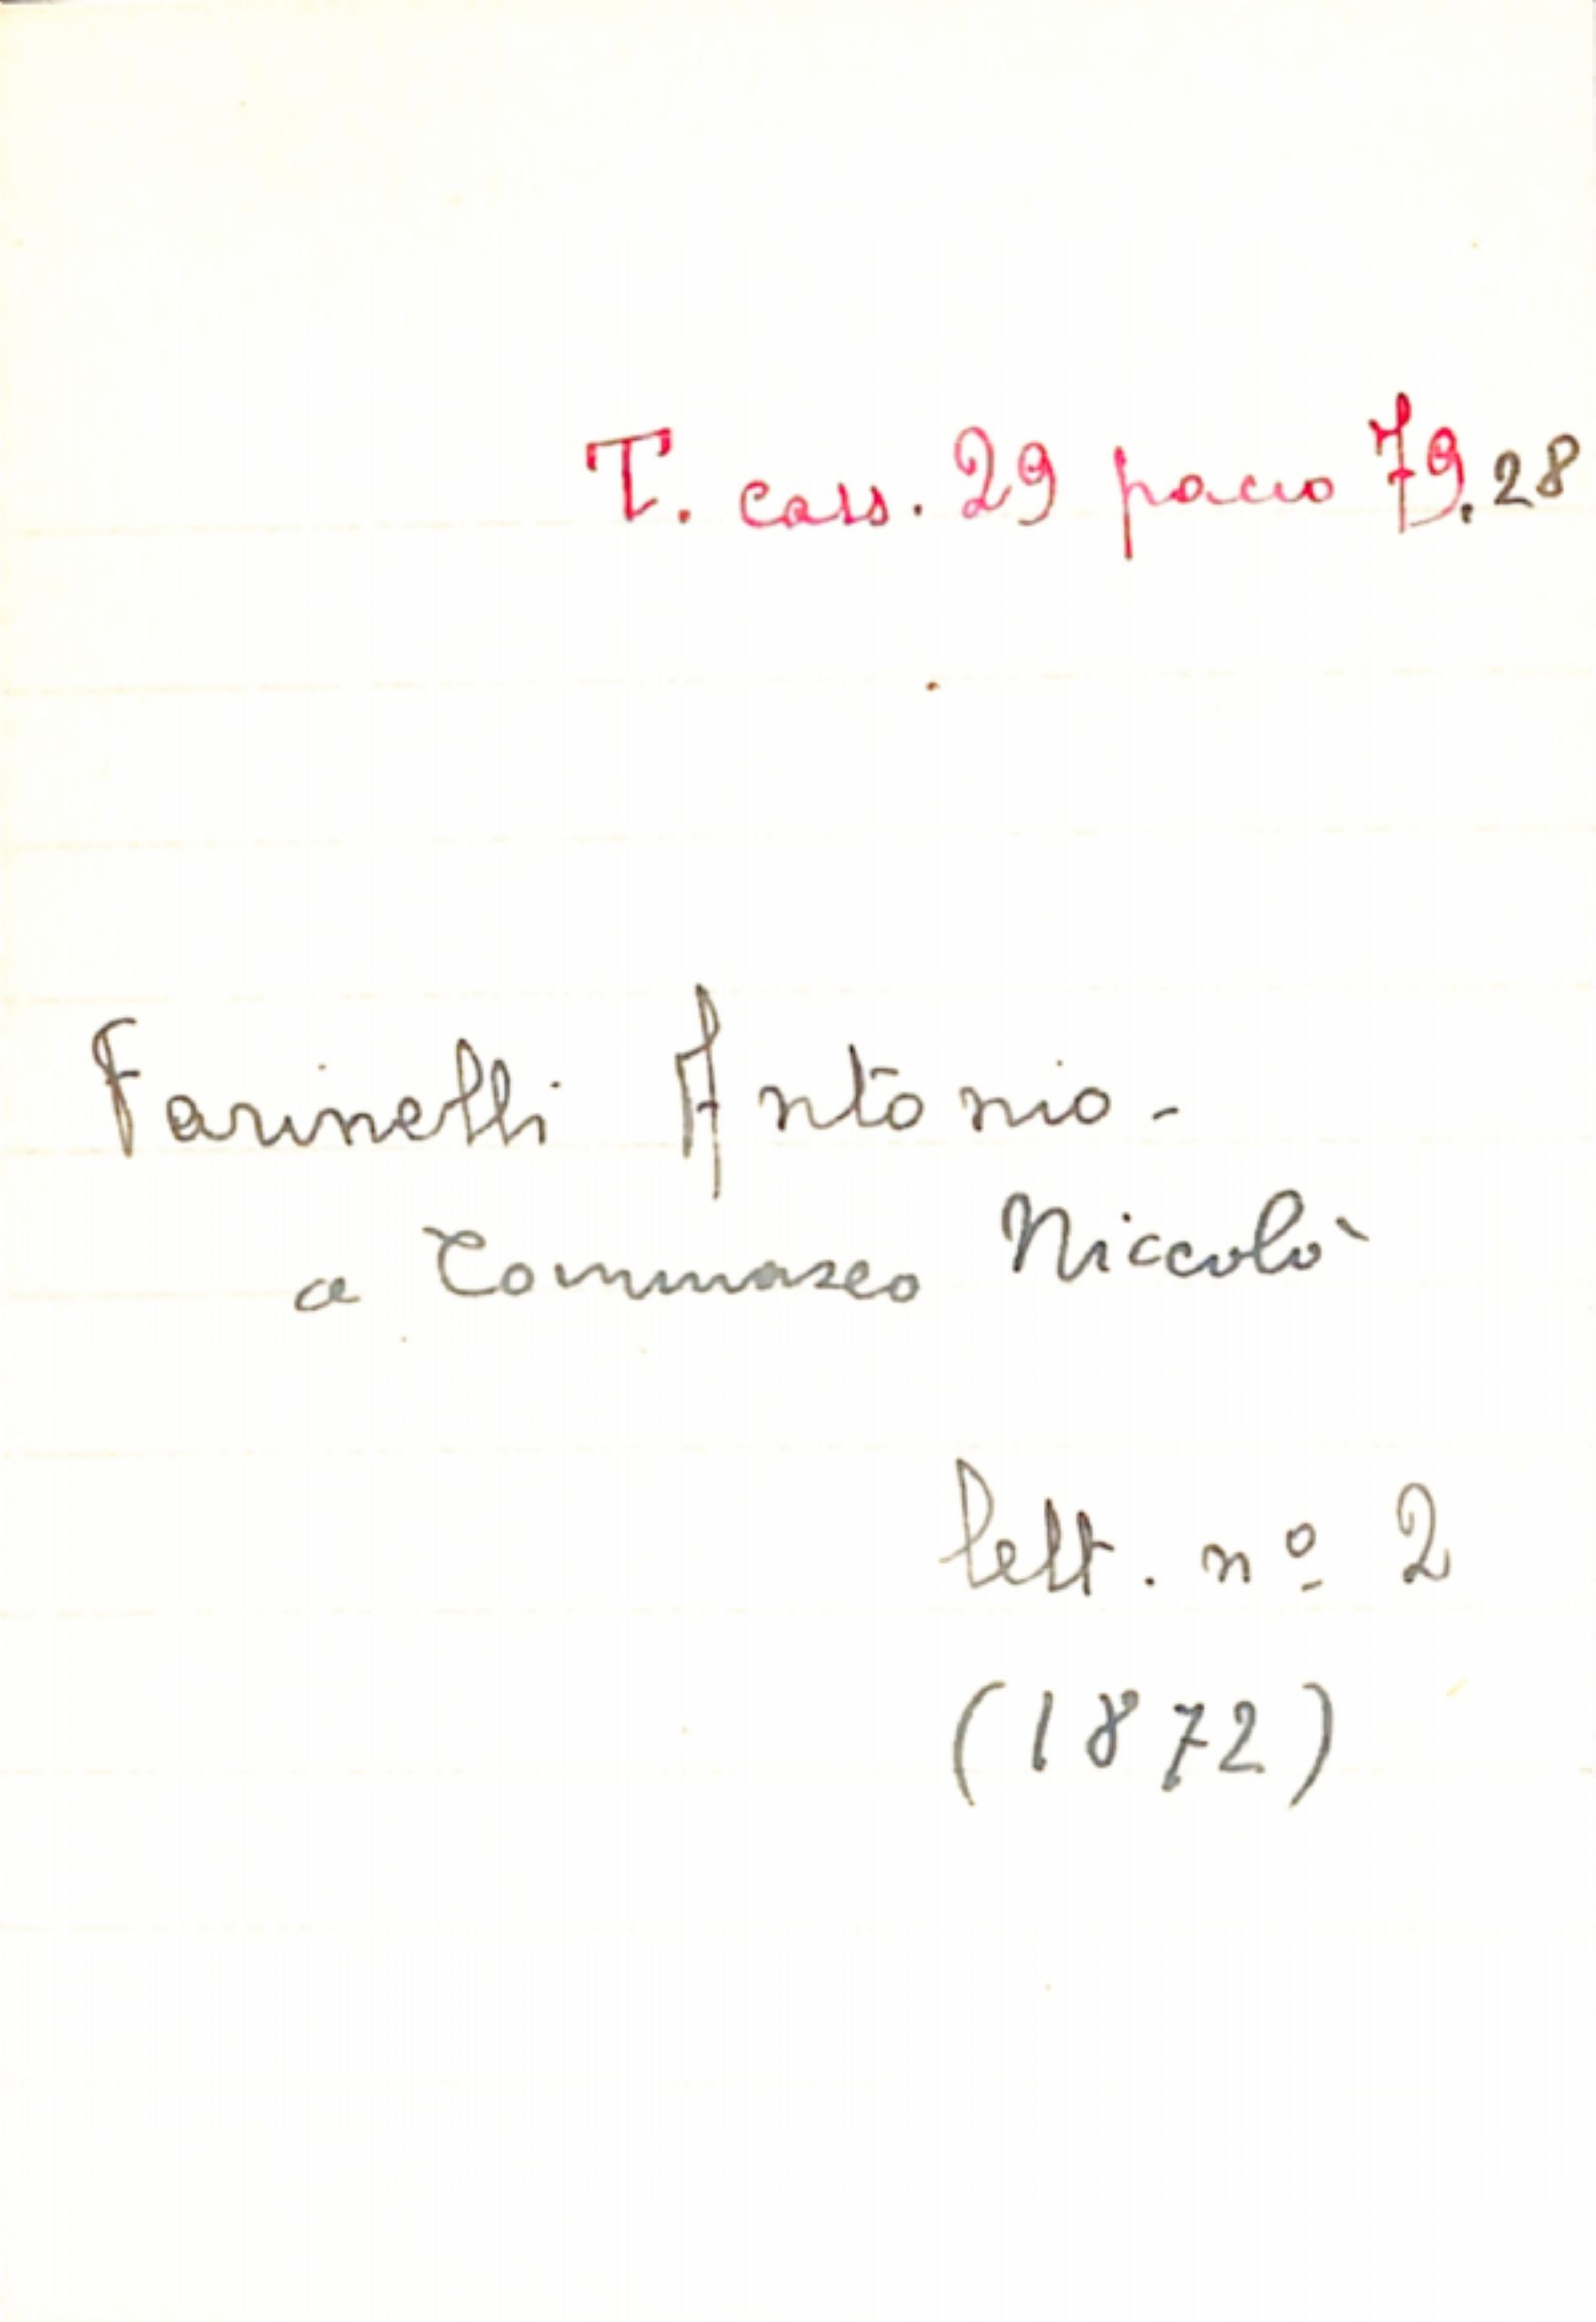 T. cass. 29 pacco 79.28
Farinelli Antonio -
a Tommaseo Niccolò
lett. nº 2
(1872)